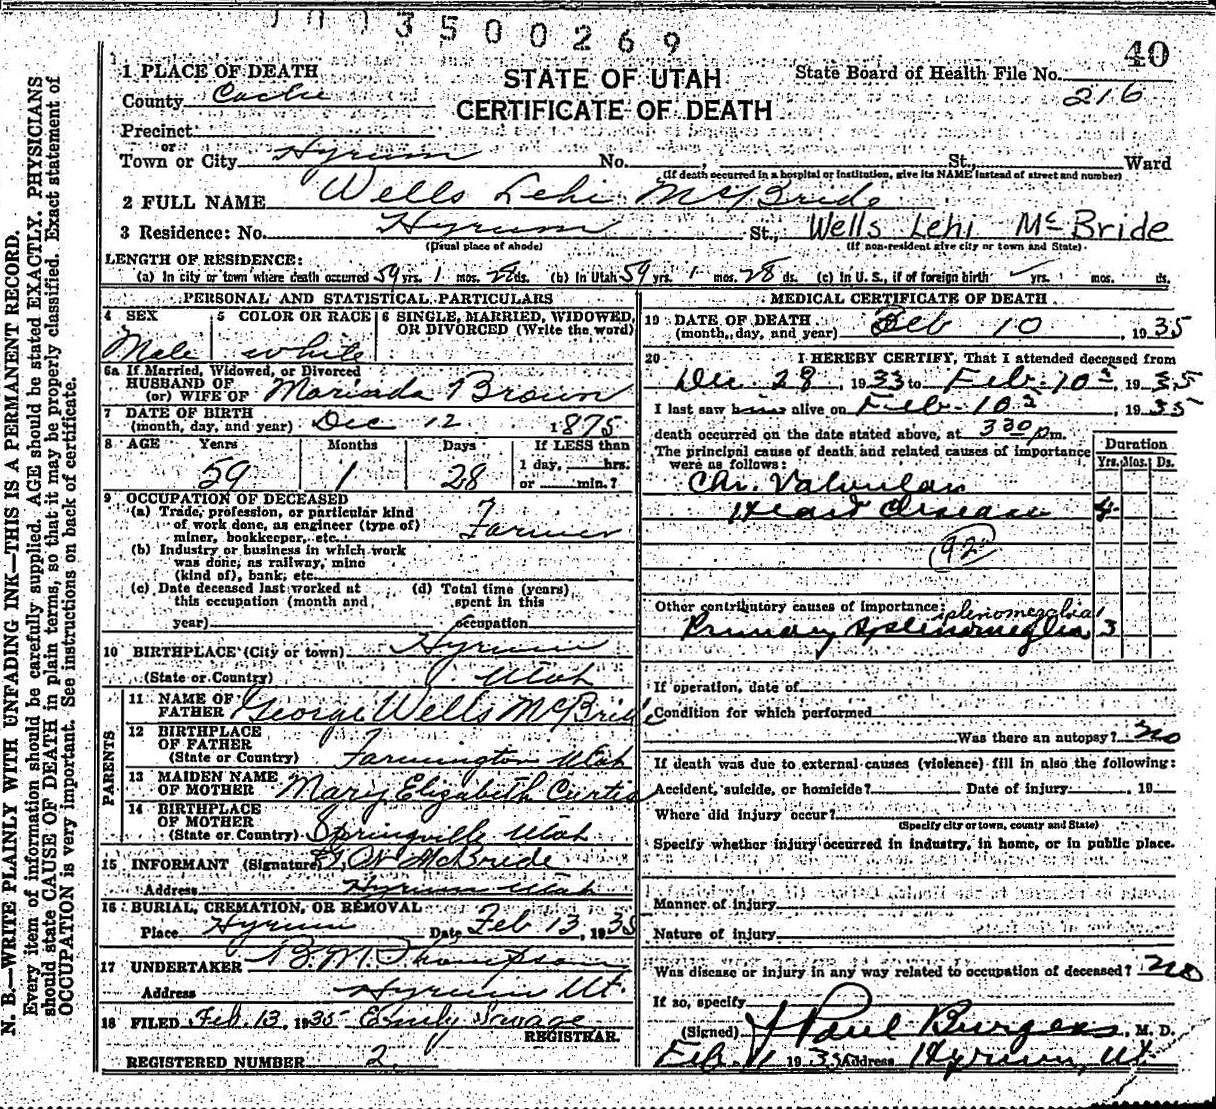 3500269
40
STATE OF UTAH
CERTIFICATE OF DEATH
State Board of Health File No. 216
1 PLACE OF DEATH
County Cache
Precinct
or
Town or City Hyrum No. , St., Ward
(If death occurred in a hospital or institution, give its NAME instead of street and number)
2 FULL NAME Wells Lehi McBride
3 Residence: No. Hyrum St., Wells Lehi McBride
(Usual place of abode) (If non-resident give city or town and State)
LENGTH OF RESIDENCE:
(a) In city or town where death occurred 59 yrs. 1 mos. 28 ds. (b) In Utah 59 yrs. 1 mos. 28 ds. (c) In U. S., if of foreign birth yrs. mos. ds.
PERSONAL AND STATISTICAL PARTICULARS
4 SEX 5 COLOR OR RACE 6 SINGLE, MARRIED, WIDOWED, OR DIVORCED (Write the word)
Male white
6a If Married, Widowed, or Divorced
HUSBAND OF
(or) WIFE OF Marinda Brown
7 DATE OF BIRTH
(month, day, and year) Dec 12 1875
8 AGE Years Months Days If LESS than
1 day, hrs.
or min.?
59 1 28
9 OCCUPATION OF DECEASED
(a) Trade, profession, or particular kind
of work done, as engineer (type of)
miner, bookkeeper, etc. Farmer
(b) Industry or business in which work
was done, as railway, mine
(kind of), bank, etc.
(c) Date deceased last worked at
this occupation (month and
year)
(d) Total time (years)
spent in this
occupation
10 BIRTHPLACE (City or town) Hyrum
(State or Country) Utah
PARENTS
11 NAME OF
FATHER George Wells McBride
12 BIRTHPLACE
OF FATHER
(State or Country) Farmington Utah
13 MAIDEN NAME
OF MOTHER Mary Elizabeth Curtis
14 BIRTHPLACE
OF MOTHER
(State or Country) Springville Utah
15 INFORMANT (Signature) G W McBride
Address Hyrum Utah
16 BURIAL, CREMATION, OR REMOVAL
Place Hyrum Date Feb 13, 1935
17 UNDERTAKER B. M. Thompson
Address Hyrum Ut.
18 FILED Feb. 13, 1935 Emily Savage
REGISTRAR.
REGISTERED NUMBER 2.
MEDICAL CERTIFICATE OF DEATH
19 DATE OF DEATH
(month, day, and year) Feb 10, 1935
20 I HEREBY CERTIFY, That I attended deceased from
Dec. 28, 1933 to Feb. 10, 1935
I last saw him alive on Feb. 10, 1935
death occurred on the date stated above, at 3 30 p m.
The principal cause of death and related causes of importance
were as follows:
Duration
Yrs. Mos. Ds.
Chr. Valvular
Heart Disease 4
92
Other contributory causes of importance: splenomegalia
Primary Splenomeglia 3
If operation, date of
Condition for which performed
Was there an autopsy? no
If death was due to external causes (violence) fill in also the following:
Accident, suicide, or homicide? Date of injury 19
Where did injury occur?
(Specify city or town, county and State)
Specify whether injury occurred in industry, in home, or in public place.
Manner of injury
Nature of injury
Was disease or injury in any way related to occupation of deceased? no
If so, specify
(Signed) J Paul Burgess, M. D.
Feb. 11 1935 Address Hyrum, Ut
N. B.—WRITE PLAINLY WITH UNFADING INK—THIS IS A PERMANENT RECORD.
Every item of information should be carefully supplied. AGE should be stated EXACTLY. PHYSICIANS
should state CAUSE OF DEATH in plain terms, so that it may be properly classified. Exact statement of
OCCUPATION is very important. See instructions on back of certificate.